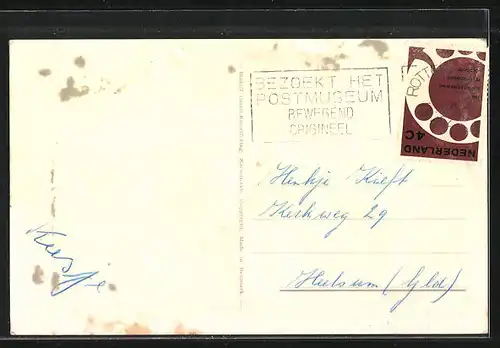 BEZOEKT HET
POSTMUSEUM
BEWEGEND
ORIGINEEL
ROTT
NEDERLAND
4C
Henkje Kieft
Kerkweg 29
Hulsum (Gld)
Keesje